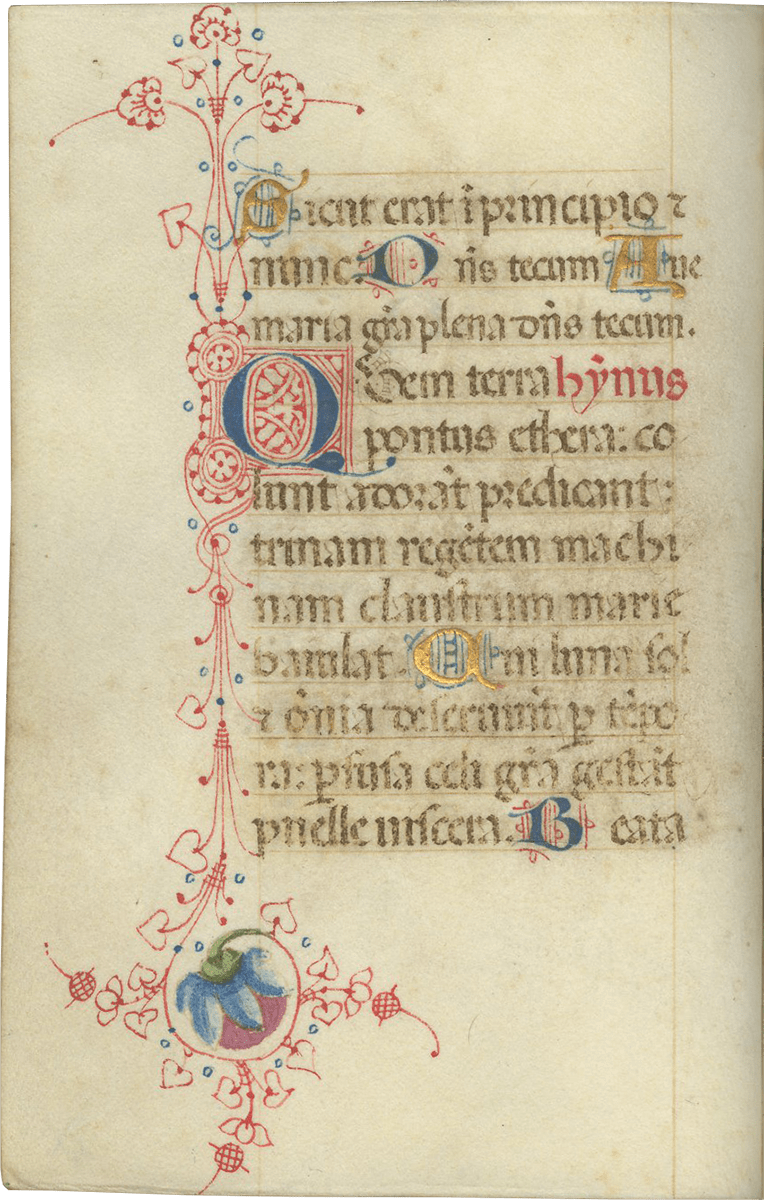 Sicut erat ī principio ⁊
nunc. Dn̄s tecum Aue
maria gr̄a plena dn̄s tecum.
Quem terra hȳnus
pontus ethera: co
lunt adorāt predicant:
trinam regētem machi
nam claustrum marie
baiulat. Cui luna sol
⁊ ōnia deseruiūt ꝑ tēpo
ra: ꝑfusa celi gr̄a gestāt
puelle uiscera. Beata